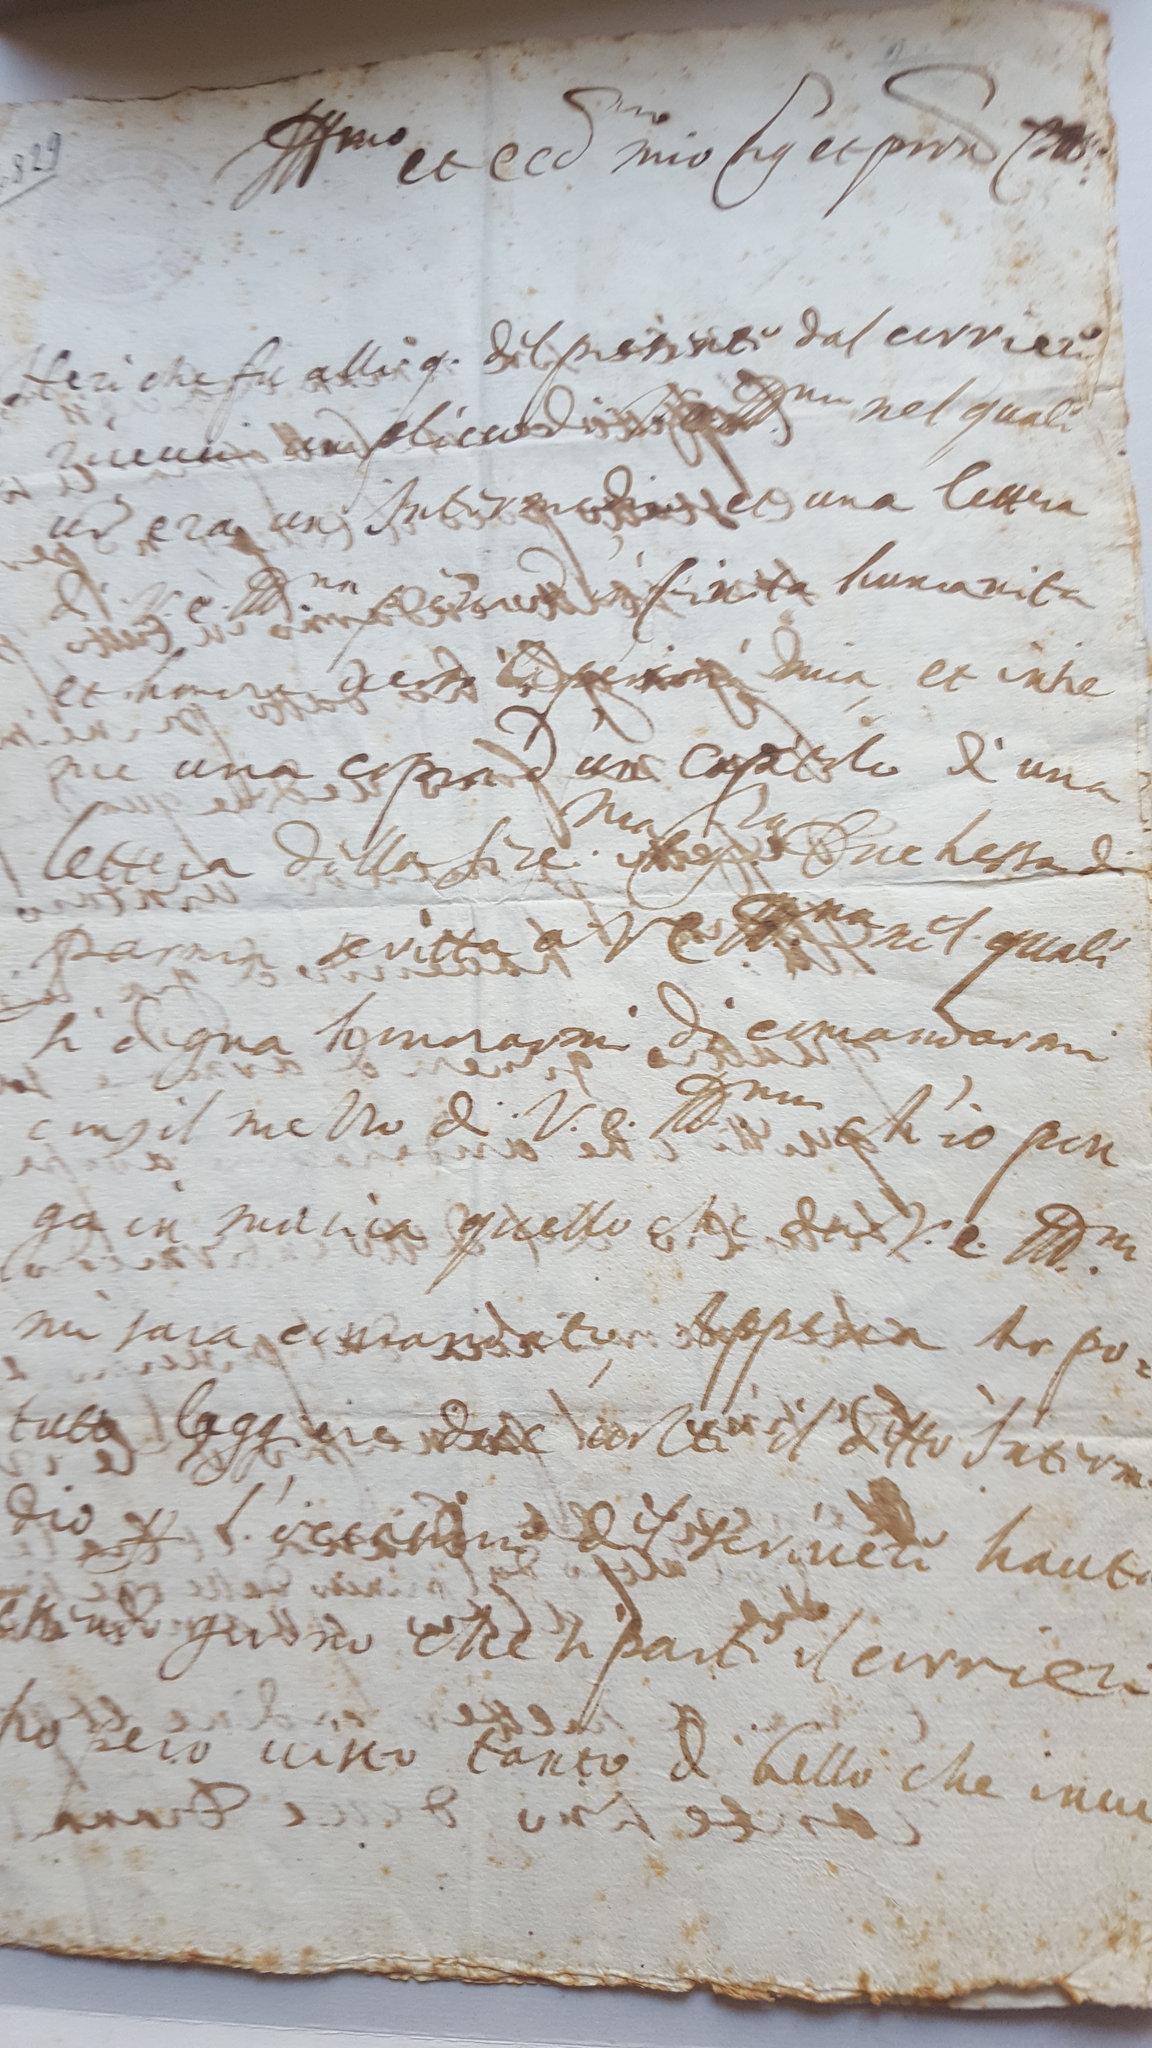 829
Ill.mo et ecc.mo mio sig et pron Coll.mo
Heri che fu alli 9. del presente dal corriere
riceuei un plico di V. E. Ill.ma nel quale
ui era un Intermedio et una lettera
di V. E. Ill.ma piena d'infinita humanita
et honore uerso la persona mia, et inhe
me una copia d'un capitolo d'una
lettera della Ser.ma Sig.ra Duchessa di
Parma scritta a V. E. Ill.ma nel quale
si degna honorarmi di comandarmi
con il mezzo di V. E. Ill.ma ch'io pon
ga in musica quello che da V. E. Ill.ma
mi sara comandato, Appena ho po=
tuto leggiere due uolte il detto Interm
dio per l'occasione dello scriuere hauta
giorno che si parte il corriere
ho pero uisto tanto di bello che in